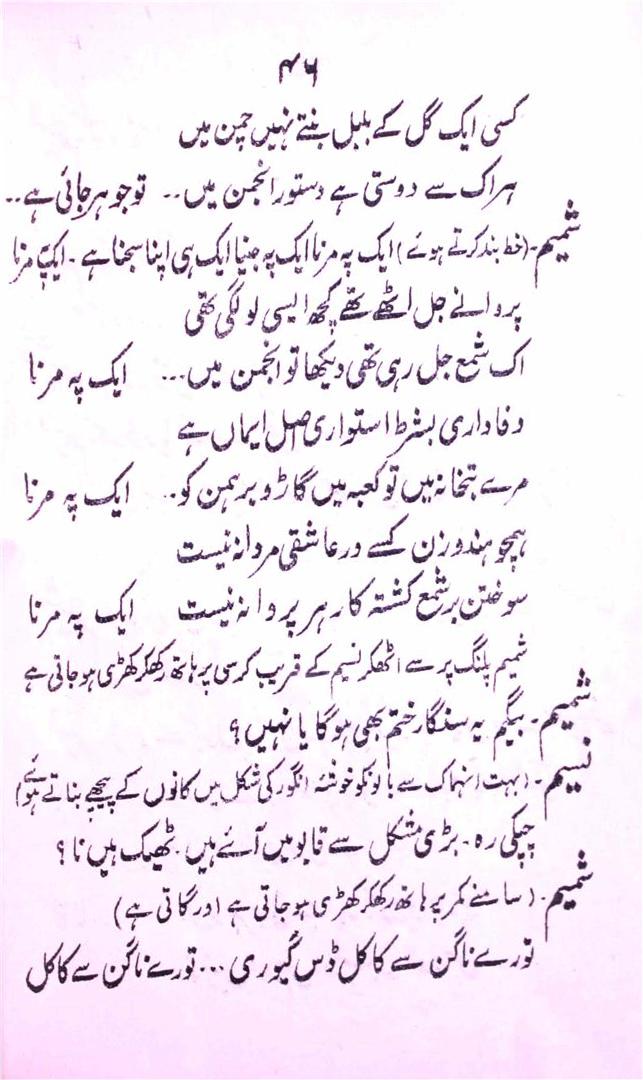 ۴۶
کسی ایک گل کے بلبل بنتے نہیں چمن میں
ہر اک سے دوستی ہے دستور انجمن میں۔۔ توجو ہرجائی ہے۔۔
شمیم۔ (خط بند کرتے ہوئے) ایک پہ مرنا ایک پہ جینا ایک ہی اپنا سجنا ہے۔ ایک پہ مرنا
پروانے جل اٹھے تھے کچھ ایسی لو لگی تھی
اک شمع جل رہی تھی دیکھا تو انجمن میں۔۔۔ ایک پہ مرنا
وفاداری بشرط استواری اصل ایماں ہے
مرے بتخانہ میں تو کعبہ میں گاڑو برہمن کو۔۔ ایک پہ مرنا
ہمچو ہندو زن کسے در عاشقی مردانہ نیست
سوختن بر شمع کشتہ کار ہر پروانہ نیست ایک پہ مرنا
شمیم پلنگ پر سے اٹھکر نسیم کے قریب کرسی پر ہاتھ رکھکر کھڑی ہو جاتی ہے
شمیم۔ بیگم یہ سنگار ختم بھی ہوگا یا نہیں؟
نسیم۔ (بہت انہماک سے بالونکو خوشۂ انگور کی شکل میں کانوں کے پیچھے بناتے ہوئے)
چپکی رہ۔ بڑی مشکل سے قابو میں آئے ہیں۔ ٹھیک ہیں نا؟
شمیم۔ (سامنے کمر پر ہاتھ رکھکر کھڑی ہو جاتی ہے اور گاتی ہے)
تورے ناگن سے کاکل ڈس گیوری ۔۔۔ تورے ناگن سے کاکل